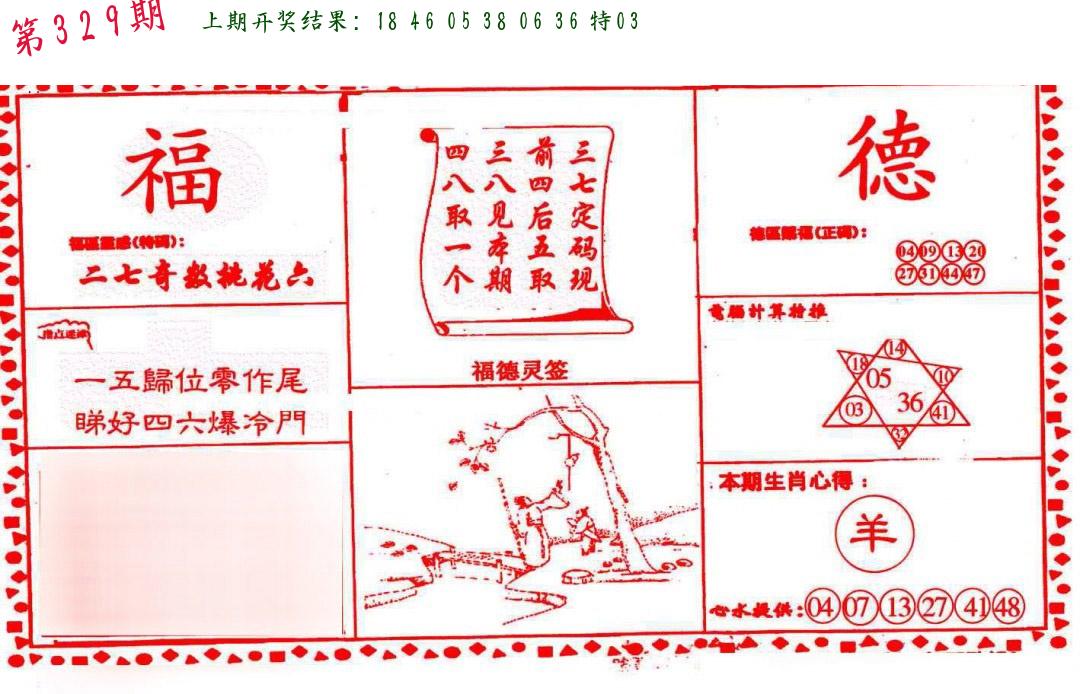 第329期
上期开奖结果：18 46 05 38 06 36 特03
福
福區靈感(特碼)：
二七奇数桃花六
一五歸位零作尾
睇好四六爆冷門
三七定码现
前四后五取
三八见本期
四八取一个
福德灵签
德
德區賜福(正码)：
04 09 13 20
27 31 44 47
電腦計算特推
14
18 05 10
03 36 41
32
本期生肖心得：
羊
心水提供：04 07 13 27 41 48